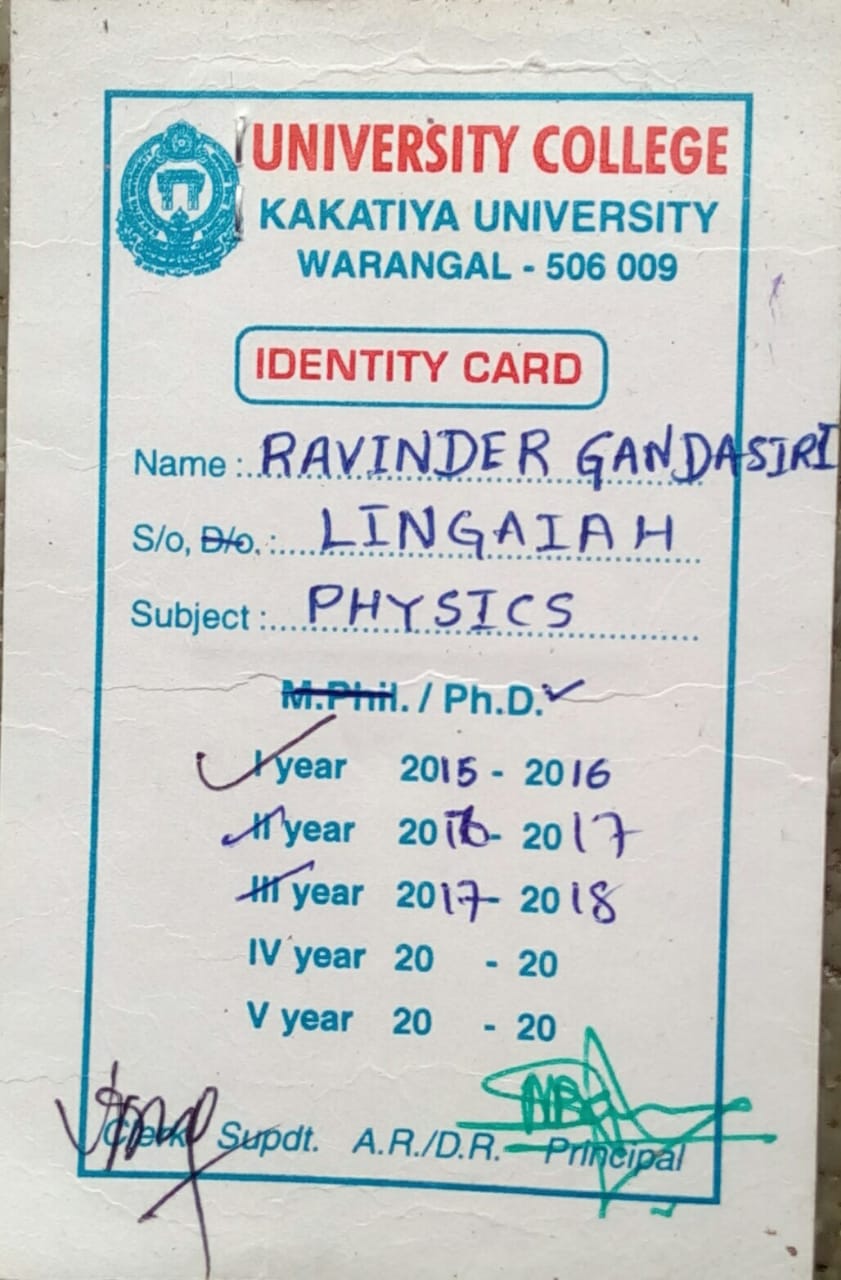 UNIVERSITY COLLEGE
KAKATIYA UNIVERSITY
WARANGAL - 506 009
IDENTITY CARD
Name : RAVINDER GANDASIRI
S/o, D/o. : LINGAIAH
Subject : PHYSICS
M.Phil. / Ph.D.✓
I year 2015 - 2016
II year 2016 - 2017
III year 2017 - 2018
IV year 20 - 20
V year 20 - 20
Clerk Supdt. A.R./D.R. Principal